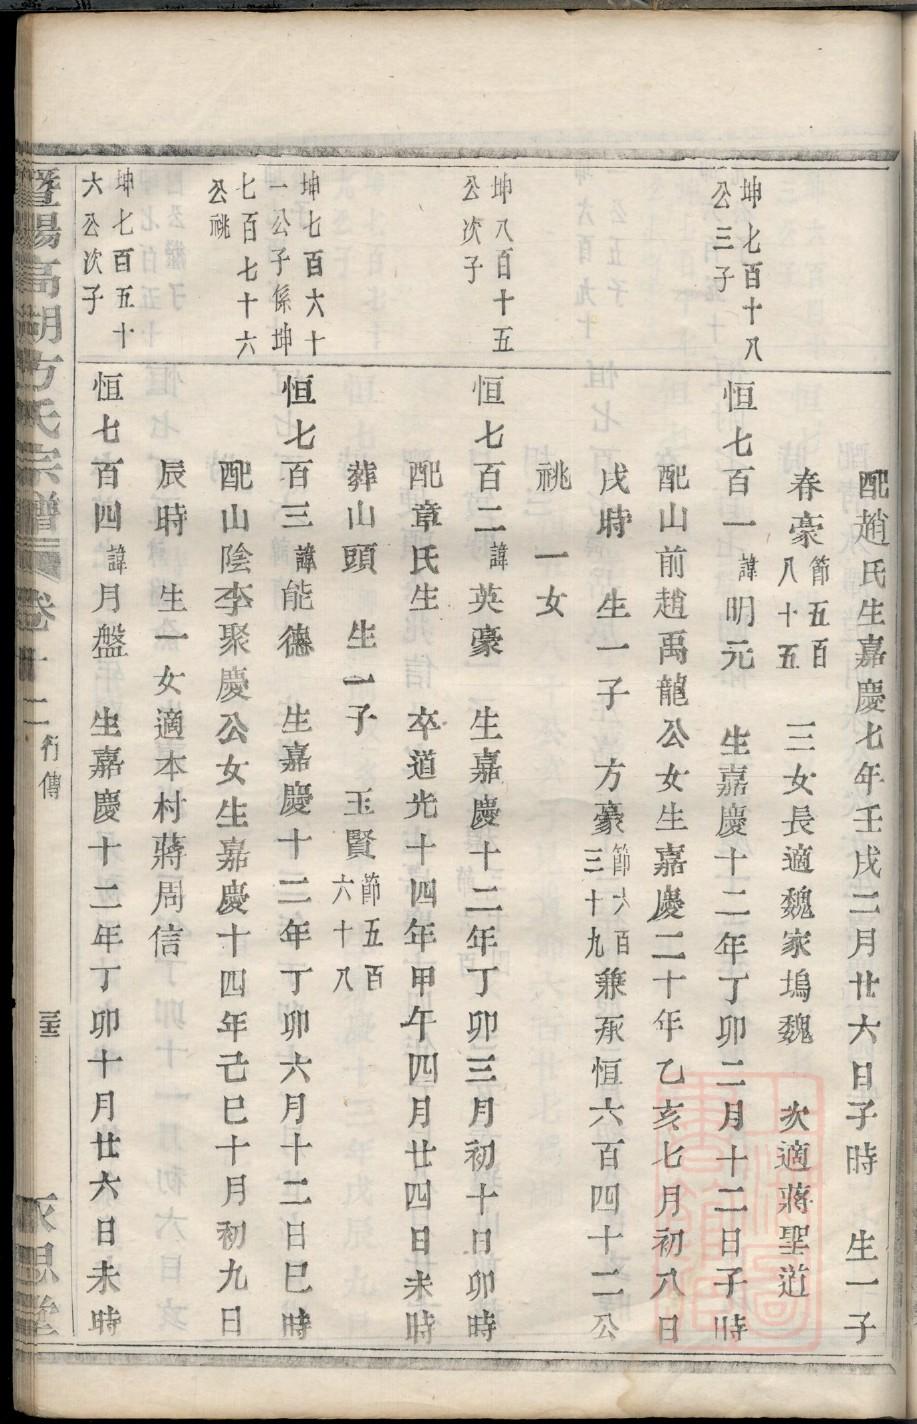 配趙氏生嘉慶七年壬戌二月廿六日子時　生一子
春豪節五百八十五　三女長適魏家塢魏　次適蔣聖道
坤七百十八公三子
恒七百一諱明元　生嘉慶十二年丁卯二月十二日子時
配山前趙禹龍公女生嘉慶二十年乙亥七月初八日
戌時　生一子　方豪節六百三十九兼承恒六百四十二公
祧　一女
坤八百十五公次子
恒七百二諱英豪　生嘉慶十二年丁卯三月初十日卯時
配章氏生　卒道光十四年甲午四月廿四日未時
葬山頭　生一子　玉賢節五百六十八
坤七百六十一公子係坤七百七十六公祧
恒七百三諱能德　生嘉慶十二年丁卯六月十二日巳時
配山陰李聚慶公女生嘉慶十四年己巳十月初九日
辰時　生一女適本村蔣周信
坤七百五十六公次子
恒七百四諱月盤　生嘉慶十二年丁卯十月廿六日未時
暨陽高湖方氏宗譜　卷十二　行傳　永思堂